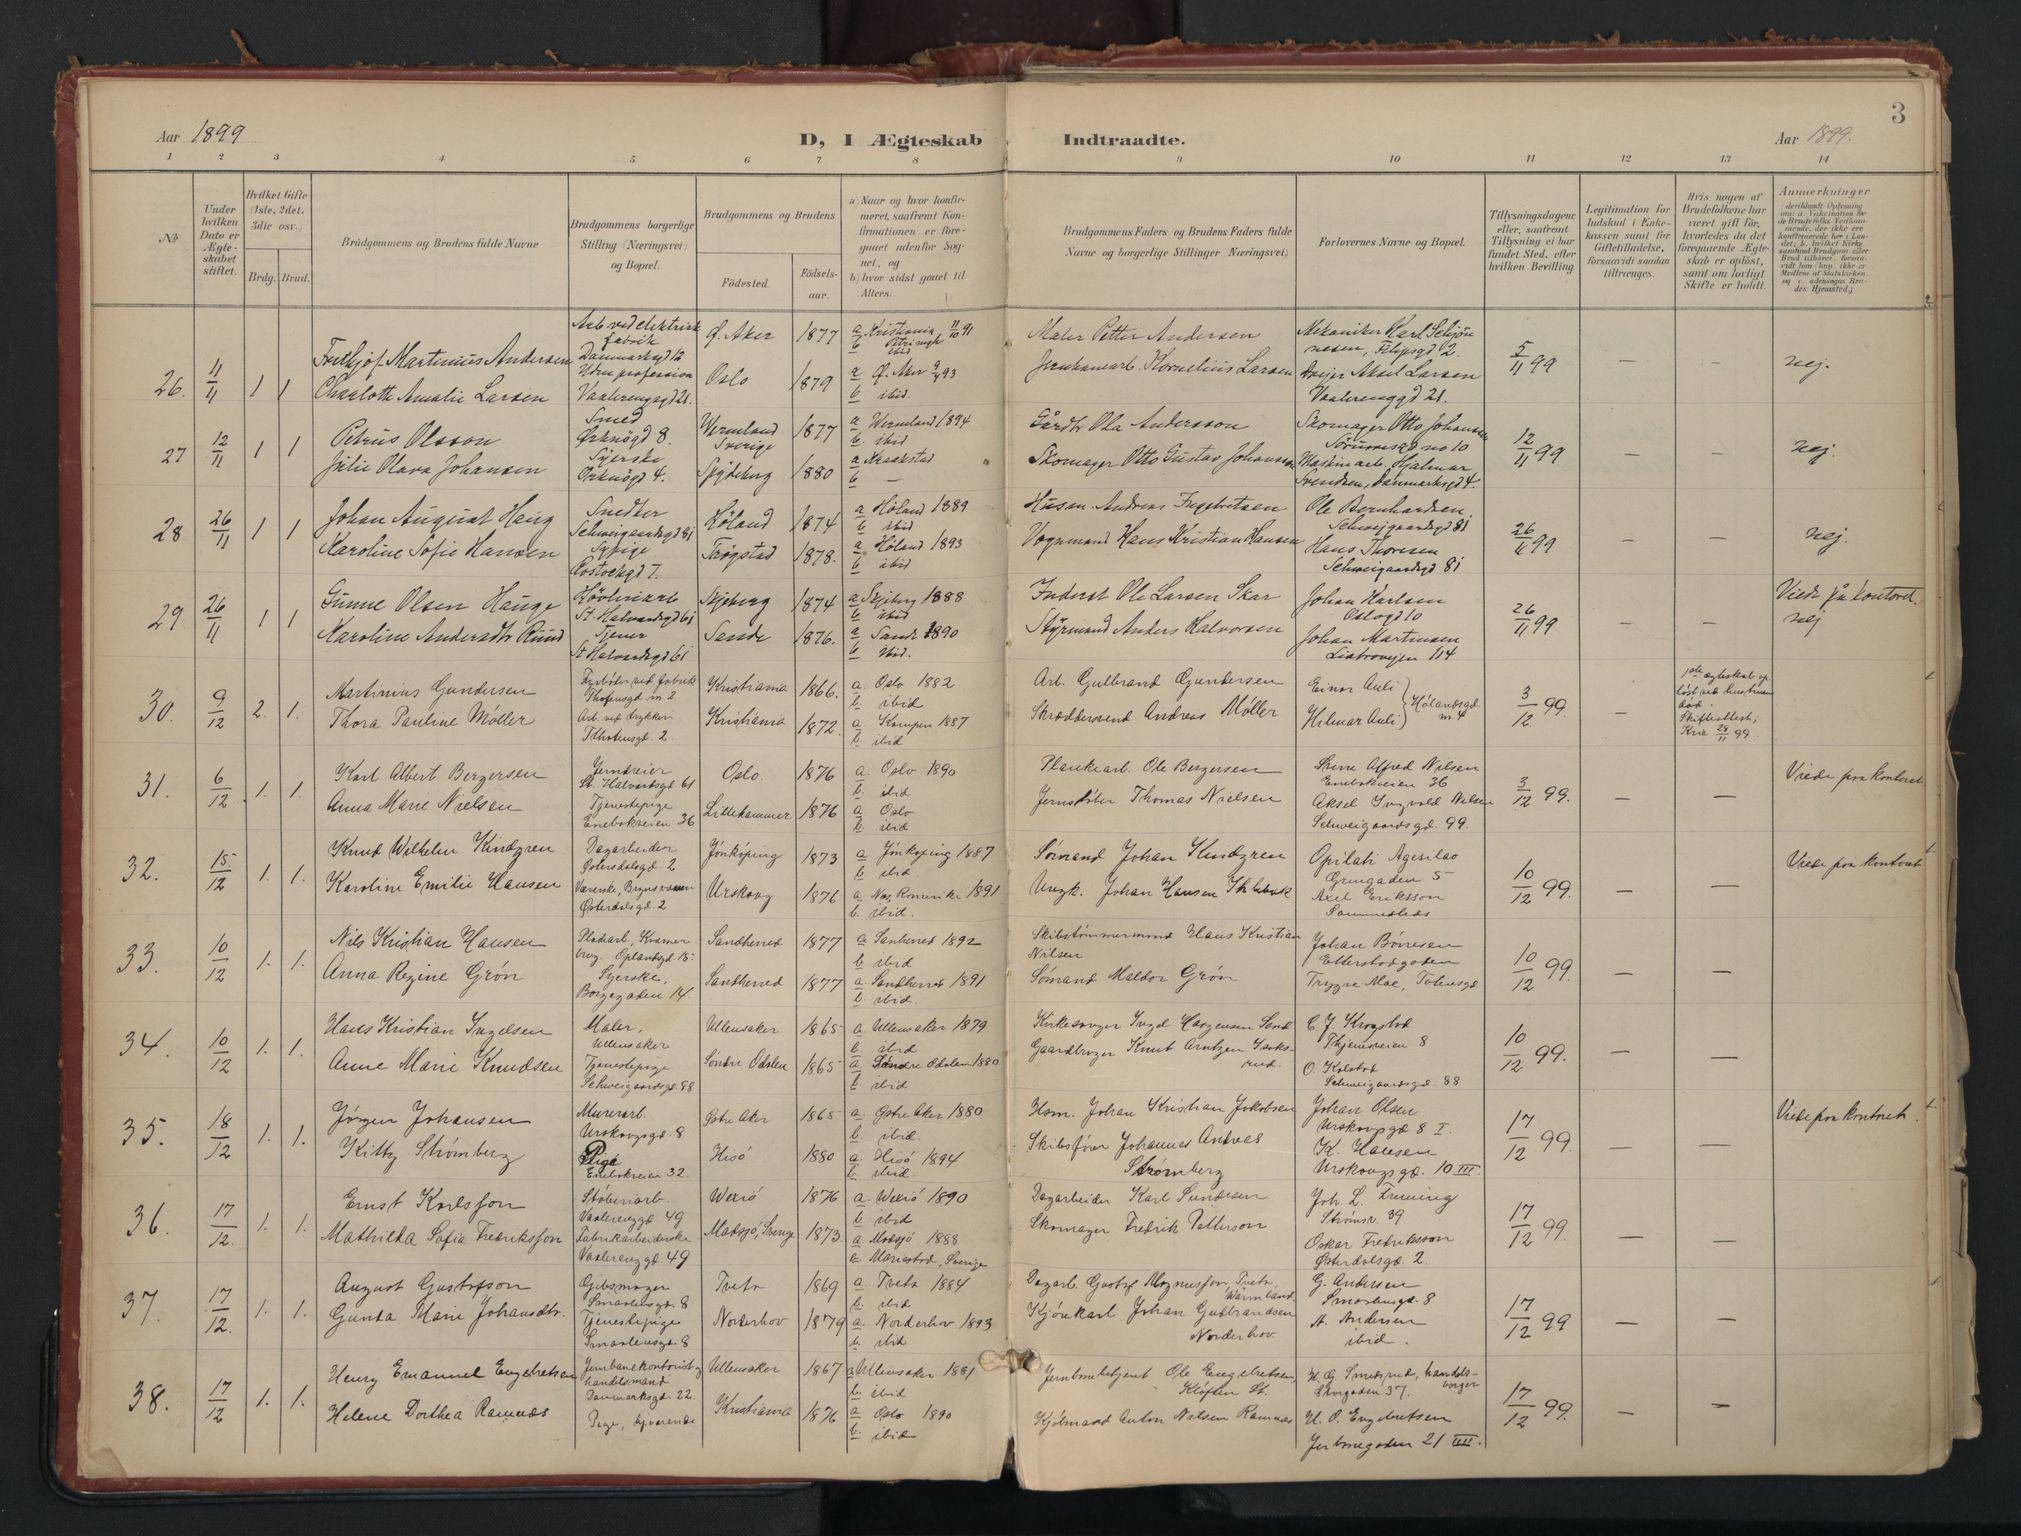 3
Aar 1899
D, I Ægteskab Indtraadte.
Aar 1899.
1 2 3 4 5 6 7 8 9 10 11 12 13 14
No
Under hvilken Dato er Ægteskabet stiftet.
Hvilket Gifte (1ste, 2det, 3die osv.)
Brdg. Brud.
Brudgommens og Brudens fulde Navne
Brudgommens borgerlige Stilling (Næringsvei) og Bopæl.
Brudgommens og Brudens
Fødested. Fødselsaar.
a) Naar og hvor konfirmeret, saafremt Konfirmationen er foregaaet udenfor Sognet, og
b) hvor sidst gaaet til Alters.
Brudgommens Faders og Brudens Faders fulde Navne og borgerlige Stillinger Næringsvei)
Forlovernes Navne og Bopæl.
Tillysningsdagene eller, saafremt Tillysning ei har fundet Sted, efter hvilken Bevilling.
Legitimation for Indskud i Enkekassen samt for Giftetilladelse, forsaavidt saadan tiltrænges.
Hvis nogen af Brudefolkene har været gift før, hvorledes da det foregaaende Ægteskab er opløst, samt om lovligt Skifte er holdt.
Anmerkninger
26. 11/11 1 1
Frithjof Martinius Andersen
Arb ved elektrisk fabrik Danmarksgd 12
Ø. Aker 1877
a Kristiania 11/10 91
b ibid
Maler Petter Andersen
5/11 99 — — nej.
Charloth Amalie Larsen
Uden profession Vaalerenggd 21.
Oslo 1879
a Ø. Aker 93
b ibid.
Jernbanearb. Kornelius Larsen
Drejer Aksel Larsen Vaalerenggd 21.
27 12/11 1 1
Petrus Olsson
Smed Orknögd 8.
Wermland Sverige 1877
a Wermland 1894
b ibid
Gårdbr Ola Andersson
Skomager Otto Johansen Sörumsgd no 10
12/11 99 — — Nej.
Julie Olava Johansen
Syerske Orknögd 4.
Spydeberg 1880
a Kraakstad
b —
Skomager Otto Gustav Johansen
Maskinarb. Hjalmar Svendsen, Danmarksgd 4.
28 26/11 1 1
Johan August Haug
Snedker Schweigaardsgd 81
Höland 1874
a Höland 1889
b ibid
Husm. Andreas Ingebretsen
Ole Bernhardsen, Schweigaardsgd 81
26/11 99 — — Nej.
Karoline Sofie Hansen
Sypige
Trøgstad 1878.
a Höland 1893
b ibid
Vognmand Hans Kristian Hansen
Hans Thoresen Schweigaardsgd 81
29 26/11 1 1
Gunne Olsen Hauge
Høvleriarb St. Halvardsgd 61
Skjeberg 1874
a Skjeberg 1888
b ibid
Inderst Ole Larsen Skar
Johan Karlsen Oslogd 10
26/11 99 — —
Viede på kontoret.
nej
Karoline Andersdtr Rund
Tjener St Halvardsgd 61
Sande 1876.
a Sande 1890
b ibid.
Styrmand Anders Halvorsen
Johan Martinsen 114
30. 9/12 2. 1.
Martinius Gundersen
Fyrbøder ved fabrik
Kristiania 1866.
a. Oslo 1882
b. ibid
Arb. Gulbrand Gundersen
Einar Auli
3/12 99. —
1ste ægteskab opløst ved hustruen død. Skifteattest, Kria 24/11 99.
Thora Pauline Møller
Arb ved trykkeri
Kristiania 1872.
a. Kampen 1887
b. ibid
Skræddersvend Andreas Møller
Hilmar Auli Hølandsgd n 4
31. 6/12 1. 1.
Karl Albert Bergersen
St. Halvardsgd 61
Oslo. 1876
a. Oslo 1890
b. ibid
Plankearb. Ole Bergersen
Alfred Nilsen Enebakveien 36
3/12 99. — —
Viede paa kontoret
Anna Marie Nielsen
Tjenestepige Enebakveien 36
Lillehammer 1876
a Oslo
b. ibid
Jernstøber Thomas Nielsen
Aksel Ingvald Nilsen Schweigaardsgd. 99.
32. 15/12 1. 1.
Knud Wilhelm Kindgren
Dagarbeider Østerdalsgd. 2
Jönköping 1873
a Jönköping 1887
b. ibid
Sømand Johan Kindgren
Opilati Agesilao Grungaden 5
10/12 99. — —
Viede paa kontoret
Karoline Emilie Hansen
Østerdalsgd. 2
Urskoug 1876
a Nes, Romerike 1891
b. ibid.
Ungk. Johan Hansen
Axel Eriksson Sammesteds
33. 10/12 1. 1.
Nils Kristian Hansen
Oplandsgd 15
Sandherred 1877
a Sanherred 1892
b. ibid
Skibstømmermand Hans Kristian Nilsen
Johan Børresen Etterstadgaden
10/12 99. — —
Anna Regine Grøn
Syerske, Borgegaden 14
Sandherred 1877
a Sandherred 1891
b. ibid.
Sømand Maldor Grøn
Trygve Moe, Tøiensgd
34. 10/12 1. 1.
Hans Kristian Ingelsen
Maler, Ullensaker
Ullensaker 1865
a. Ullensaker 1879
b. ibid
Kirkesanger Ingel Haagensen Sand
C. J. Krogstad 8
10/12 99. — —
Anne Marie Knudsen
Tjenestepige Schweigaardsgd. 88
Søndre Odalen 1865
a. Søndre Odalen 1880
b. ibid
Gaardbruger Knut Arntzen
O. Kolstad Schweigaardsgd. 88
35. 18/12 1. 1.
Jørgen Johansen
Murerarb. Urskougsgd. 8
Østre Aker 1865
a. Østre Aker 1880
b. ibid.
Hsm. Johan Kristian Jakobsen
Johan Olsen Urskougsgd 8 I.
17/12 99. — —
Viede paa kontoret.
Kitty Strømberg
Pige Enebakveien 32.
Hisö 1880
a. Hisö 1894
b. ibid.
Skibsfører Johannes Andreas Strømberg
K. Hansen Urskougsgd. 10 III
36. 17/12. 1. 1.
Ernst Karlsson
Støberiarb. Vaalerenggd. 49
Wexiö 1876
a. Wexiö 1890
b. ibid
Dagarbeider Karl Sundesen
Joh. L. Freming Strømsv. 39
17/12 99. — —
Mathilda Sofia Fredriksson
Fabrikarbeiderske Vaalerenggd 49
Madsjö, Sverige 1873
a Madsjö 1888
b. Mariestad, Sverige
Skomager Fredrik Petterson
Oskar Fredriksson Østerdalsgd. 2.
37. 17/12. 1. 1.
August Gustafson
Gibsmager Smaalensgd. 8
Tveta 1869
a. Tveta 1884
b. ibid
Dagarb. Gustaf Magnusson, Tveta, Wärmland
G. Andersen Smaalensgd. 8
17/12 99 — —
Gunda Marie Johansdtr.
Tjenestepige Smaalensgd. 8
Norderhov 1879
a. Norderhov 1893
b. ibid
Kjørekarl Johan Gulbrandsen Norderhov
A. Andersen ibid.
38. 17/12 1. 1.
Henry Emanuel Engebretsen
Jernbanekontorist og handelsmand Danmarksgd. 22.
Ullensaker 1867
a Ullensaker 1881
b. ibid
Jernbanebetjent Ole Engebretsen, Kløften St.
H. G. Smedsrud, handelsborger 37.
17/12 99. — —
Helene Dorthea Ramnæs
Pige, hjemmeværende
Kristiania 1876
a. Oslo 1890
b. ibid
Kjøbmand Anton Nilsen Ramnæs
H. O. Engebretsen Jernbanegaden 21 III.